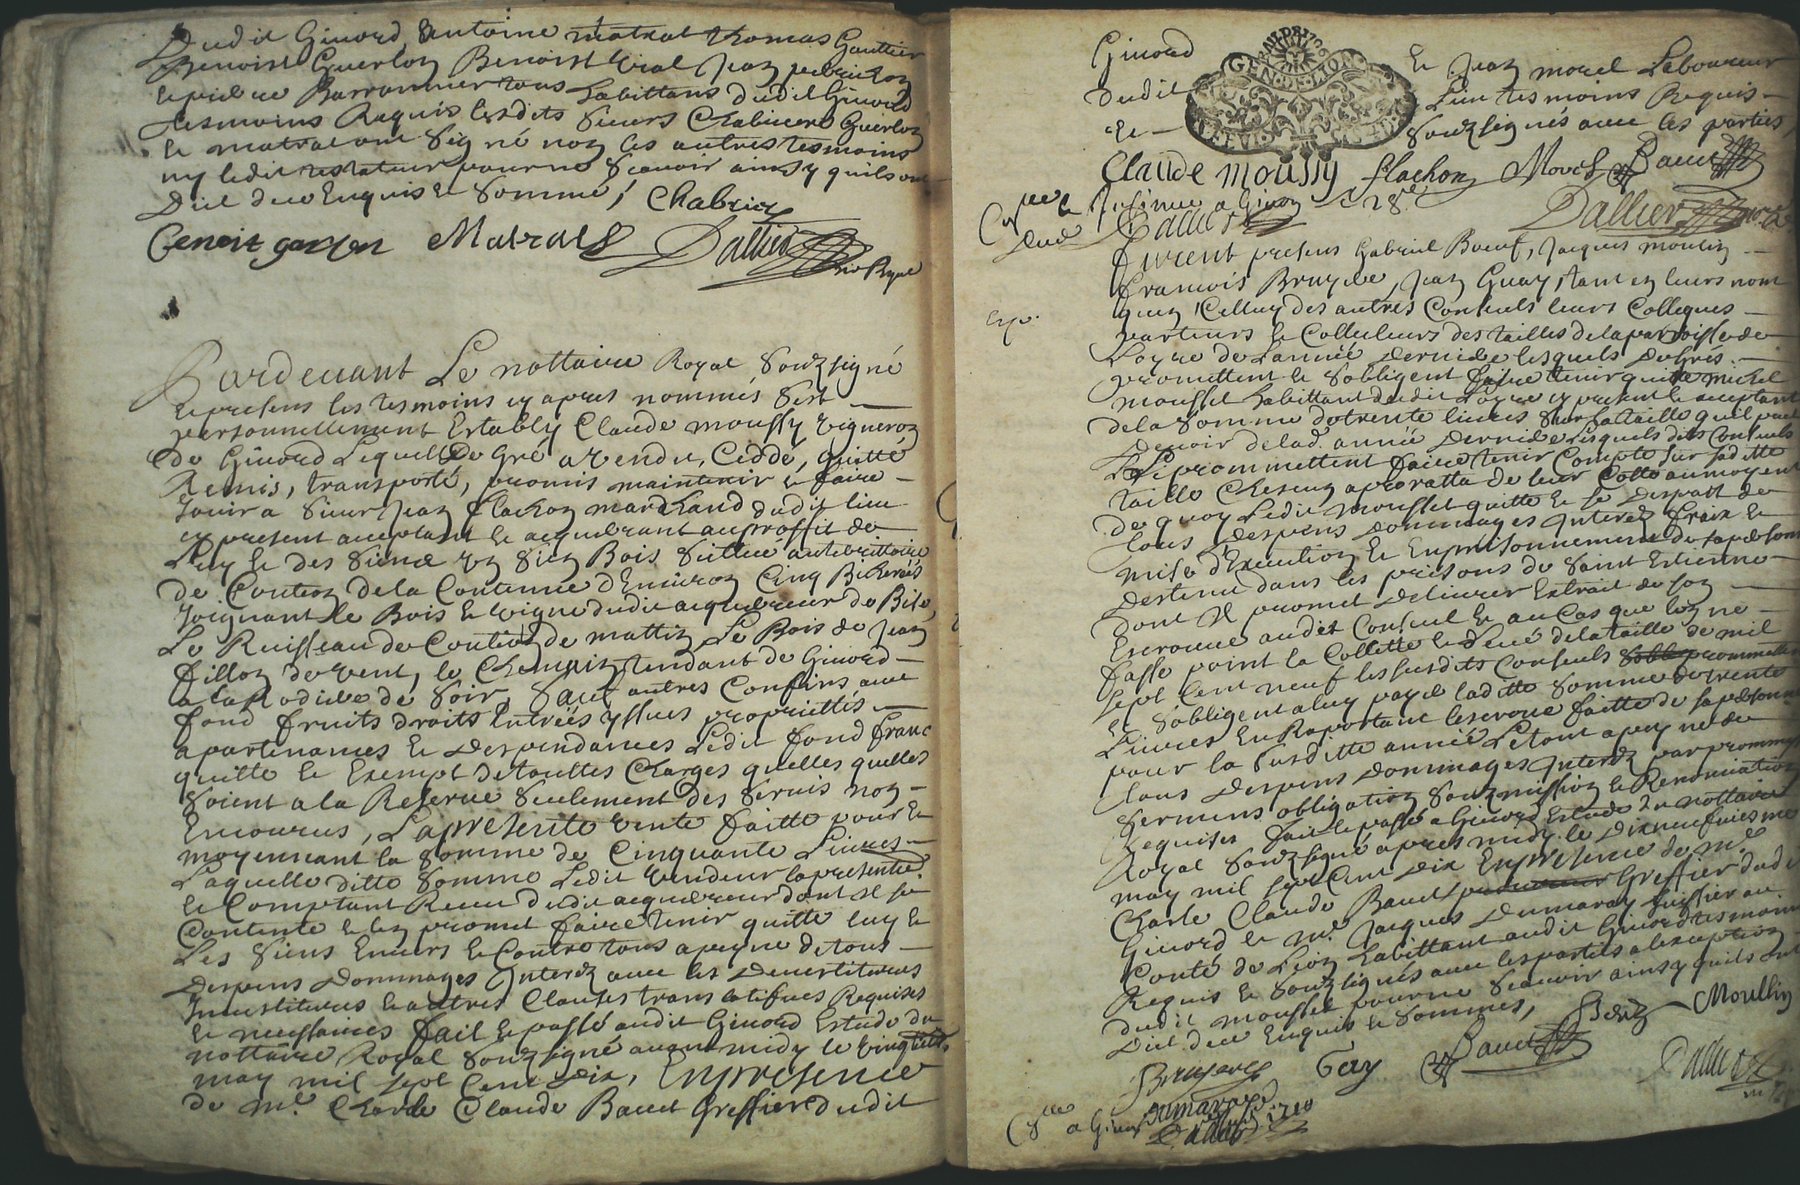 Dudit Givord Antoine Matrat Thomas Gauttier
Benoist Guerlon Benoist Vial Jean
Barronnier tous habittans dudit Givord
tesmoins Requis lesdits Sieurs Chabuere Guerlon
et matrat ont Signé non les autres tesmoins
ny ledit testateur pour ne Scavoir ainsy quils ont
Dit de ce Enquis et Sommé, Chabuer
Benoit garlon Matrat Dallier
no Royal
Pardevant Le nottaire Royal Souzsigné
et presens les tesmoins cy apres nommés Sest
personnellement Estably Claude moussy vigneron
de Givord Lequel De Gré a vendu, Ceddé, quitté
Remis, transporté, promis maintenir et faire
Jouir a Sieur Jean flachon marchand dudit lieu
cy present acceptant et acquerant au proffit de
Luy et des Siens un Sien Bois Scittué au territoire
de Coution de la Contenue d'Environ Cinq Bicherées
Joignant le Bois et vigne dudit acquereur de Bize,
Le Ruisseau de Coution de mattin Le Bois de Jean
fillon de vent, le Chemain tendant de Givord
a la Rodiere de Soir, Sauf autres Confins avec
fond fruits droits Entrées yssues proprietés
apartenances et Despendances Ledit fond franc
quitte et Exempt de touttes Charges quelles quelles
Soient a la Reserve Seulement des Servis non
Encourus, La presente vente faitte pour et
moyennant la Somme de Cinquante Livres
Laquelle ditte Somme Ledit vendeur la presentem.
et Comptant Receu dudit acquereur dont Il se
Contente et len promet faire tenir quitte luy et
Les Siens Envers et Contre tous a peyne de tous
Despens Dommages Interez avec les Devestitures
Investitures et autres Clauses translatifves Requises
et necessaires fait et passé audit Givord Estude du
nottaire Royal Souzsigné avant midy le
may mil sept Cent dix, En presence
de Mr. Charle Claude Bauet Greffier dudit
Givord et Jean morel Laboureur
GEN. DE LION
dudit Lieu tesmoins Requis
et Souzsignés avec les parties
Claude moussy flachon Morel Bauet
a Givor Dallier
Dallier
Furent presens Gabriel Boeuf, Jacques moulin
francois Bruyere, Jean Guay, tant en leurs nom
Exp.
quen Celluy des autres Consuls leurs Collegues
parteurs et Collecteurs des tailles de la parroisse de
Loyre de Lannée Derniere lesquels De Gres
promettent et Sobligent faire tenir quitte michel
mousset habittant dudit Loyre cy present et acceptant
de la Somme de trente livres Sur la taille quil peut
Devoir de lad. année Derniere Lesquels dits Consuls
Luy promettent faire tenir Compte sur laditte
taille Chescun a proratta de leur Cotte au moyent
de quoy Ledit mousset quitte et se Despart de
tous Despens Dommages Interez fraix et
mise d'Execution et Emprisonnement de sa personne
Destenu dans les prisons de Saint Estienne
Dont Il promet Delivrer Extrait de son
Escroue audit Consul et au Cas que lon ne
fasse point la Collette et levé de la taille de mil
sept Cent neuf les susdits Consuls promettent
et Sobligent a luy payé laditte Somme de trente
Livres En Raportant lescroue faitte de sa personne
pour la Susditte année Le tout a peyne de
tous Despens Dommages Interez par promesse
Sermens obligation Souzmission et Renonciation
Requises fait et passé a Givord Estude du nottaire
Royal Souzsigné apres midy le Dixneufviesme
may mil sept Cent dix En presence de Mr.
Charle Claude Bauet Greffier dudit
Givord et Mr. Jacques Dumaray huissier au
Conté de Lion habittant audit Givord tesmoins
Requis et Souzsignés avec les parties a lexception
dudit mousset pour ne Scavoir ainsy quils ont
Dit de ce Enquis et Sommes,
Moullin
Bruyere Gay Bauet Dallier
Dumaray
a Givor 1710
Dallier